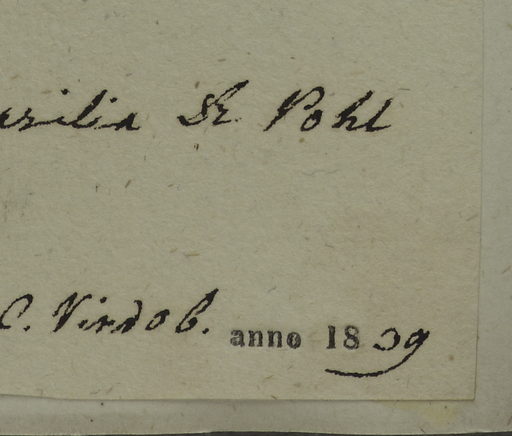 asilia D. Pohl
C. Vindob. anno 1839